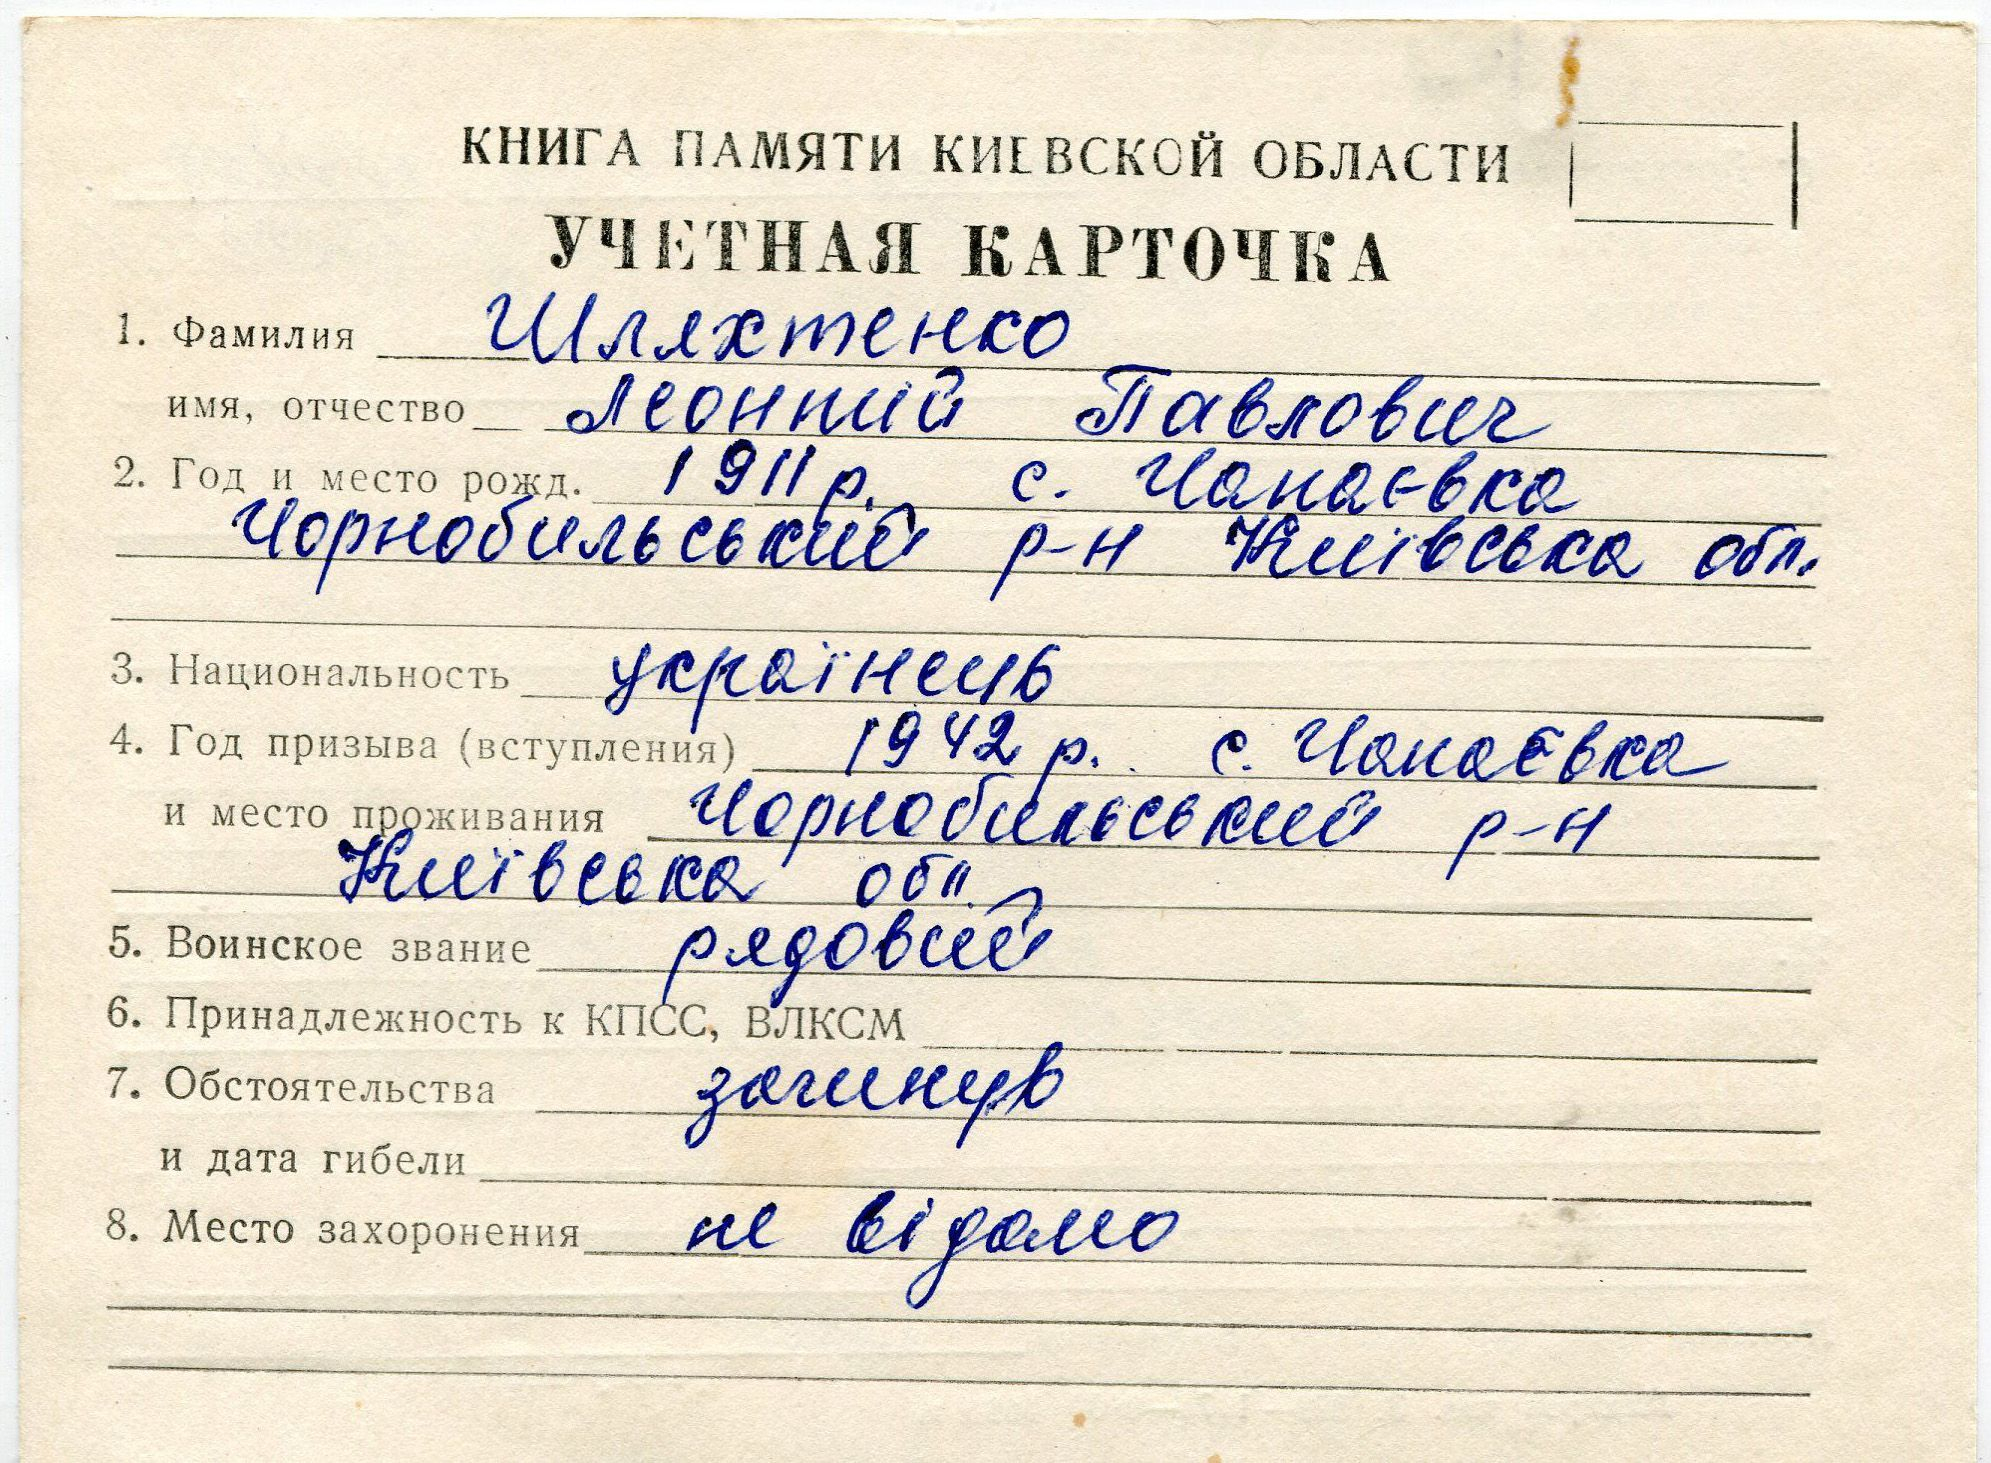 КНИГА ПАМЯТИ КИЕВСКОЙ ОБЛАСТИ
УЧЕТНАЯ КАРТОЧКА
1. Фамилия Шляхтенко
имя, отчество Леонтій Павлович
2. Год и место рожд. 1911 р. с. Чапаєвка
Чорнобильський р-н Київська обл.
3. Национальность українець
4. Год призыва (вступления) 1942 р. с. Чапаєвка
и место проживания Чорнобильський р-н
Київська обл.
5. Воинское звание рядовий
6. Принадлежность к КПСС, ВЛКСМ
7. Обстоятельства загинув
и дата гибели
8. Место захоронения не відомо